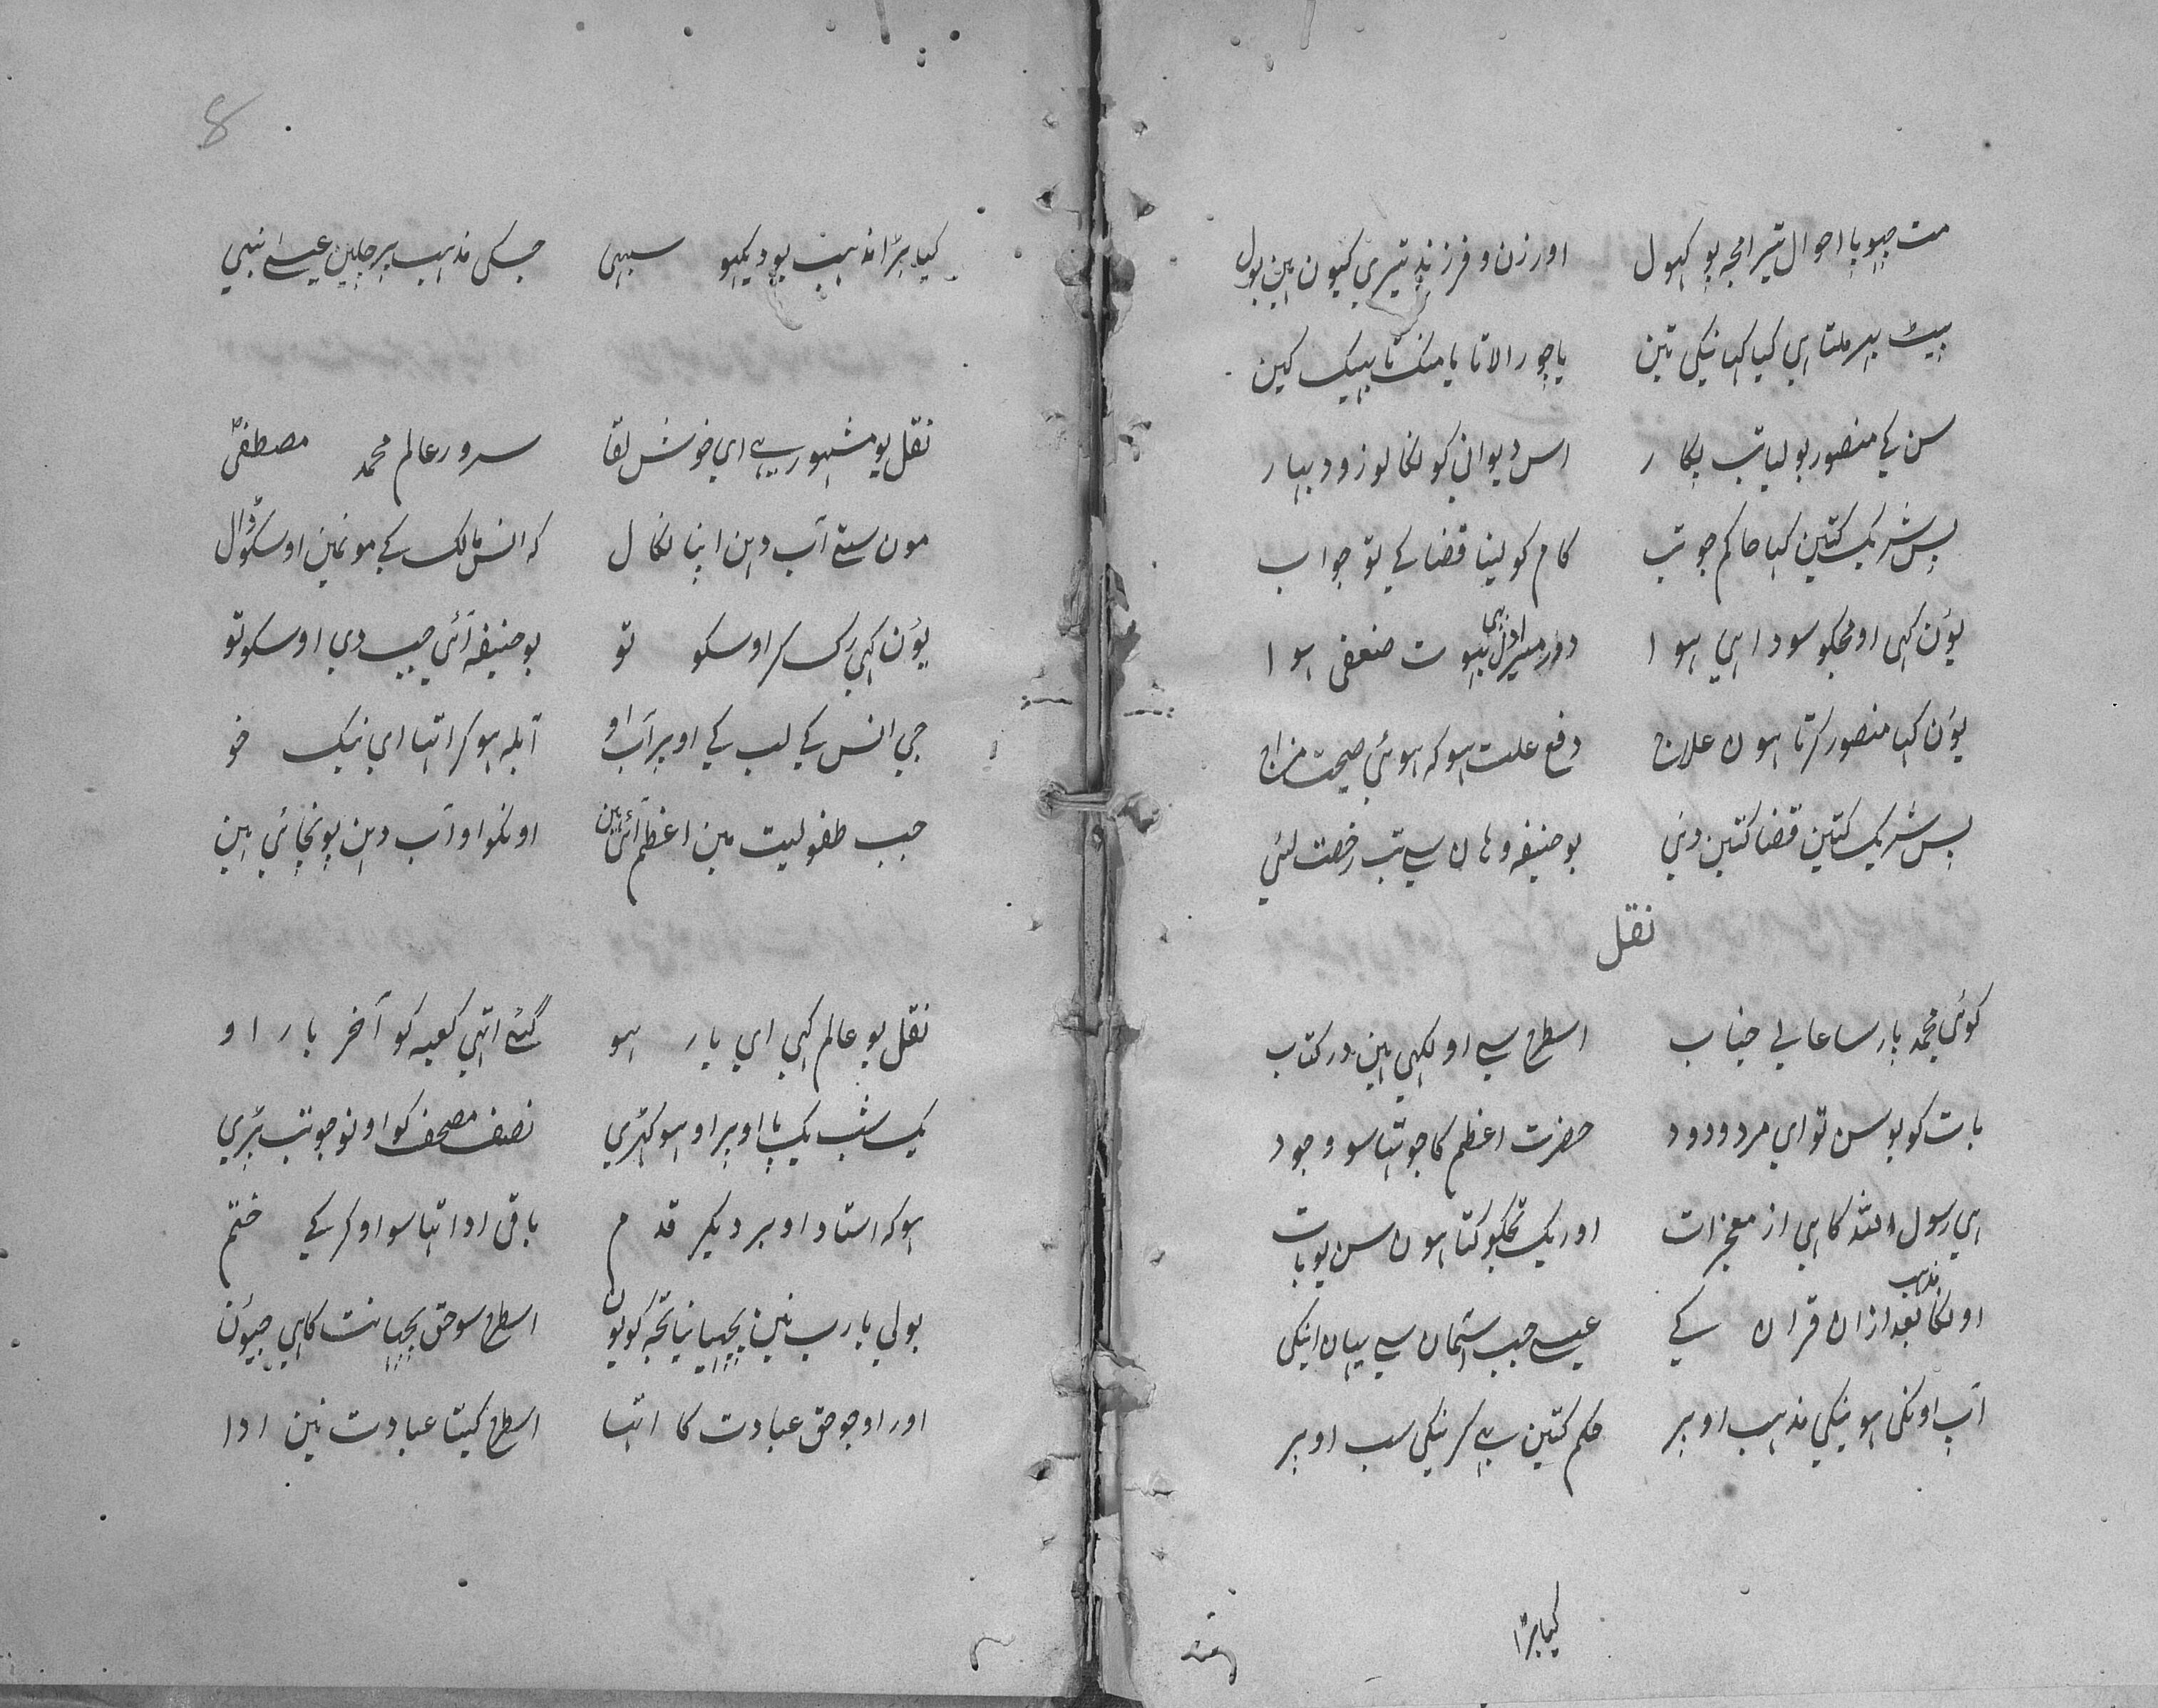 مت چپو یا احوال تیرا مجہ پو کہول اور زن و فرزند تیری کیون ہین بول
پیٹ بہر ملتا ہی کیا کہانیکی تین یا چورالاتا یا منگتا بہیک کین
سن کے منصور بولیا تب پکار اس دیوانی کو نکالو زود بہار
پس شریک کتین کہا حاکم جو تب کام کو لینا قضا کے تو جواب
یوٗن کہی او مجکو سودا ہی ہوا دور میرا دل بہوت ضعفی ہوا
یوٗن کہا منصور کرتا ہون علاج دفع علت ہو کہ ہوئی صحت مزاج
پس شریک کتین قضا کتین دئی بو حنیفہ وہان سے تب رخصت لئی
نقل
کوئی محمد پارسا عالے جناب اسطرح سے او لکہی ہین در کتاب
بات کو یو سن تو ای مرد ودود حضرت اعظم کا جو تہا سو وجود
ہی رسول اللہ کا ہی از معجزات اور یک تجکو کتا ہون سن یو بات
اونکا مذہب بعد ازان قران کے عیسے جب اسمان سے یہان اینکی
آپ اونکی ہوینیکی مذہب اوپر حکم کتین بے کرنیکی سب اوپر
کیا بڑا
8
کیا بڑا مذہب یو دیکہو سبہی جسکی مذہب پر چلین عیسے نبی
نقل یو مشہور ہے ای خوش لقا سرور عالم محمد مصطفیٰؐ
مون ستے آب دہن اپنا نکال کہ انس مالک کے مونمین اوسکو ڈال
یوٗن کہی رک کر اوسکو تو بو حنیفہ آئی جب دی اوسکو تو
جی انس کے لب کے اوپر آب او آبلہ ہو کر اتہا ای نیک خو
جب طفولیت مین اعظم آئی ہین اونکو او آب دہن پونچائی ہین
نقل یو عالم کہی ای یار ہو گئے اتہی کعبہ کو آخر بار او
یک شب یک پا اوپر او ہو کہڑی نصف مصحف کو اونو جو تب پڑی
ہو کہ استاد اوپر دیگر قدم باقی ادا تہا سو او کر کے ختم
بولی یا رب مین پچہیانیا تجہ کو یون اسطرح سو حق پچہیانت کا ہی جیوٗن
اور او جو حق عبادت کا اتہا اسطرح کیتا عبادت نین ادا